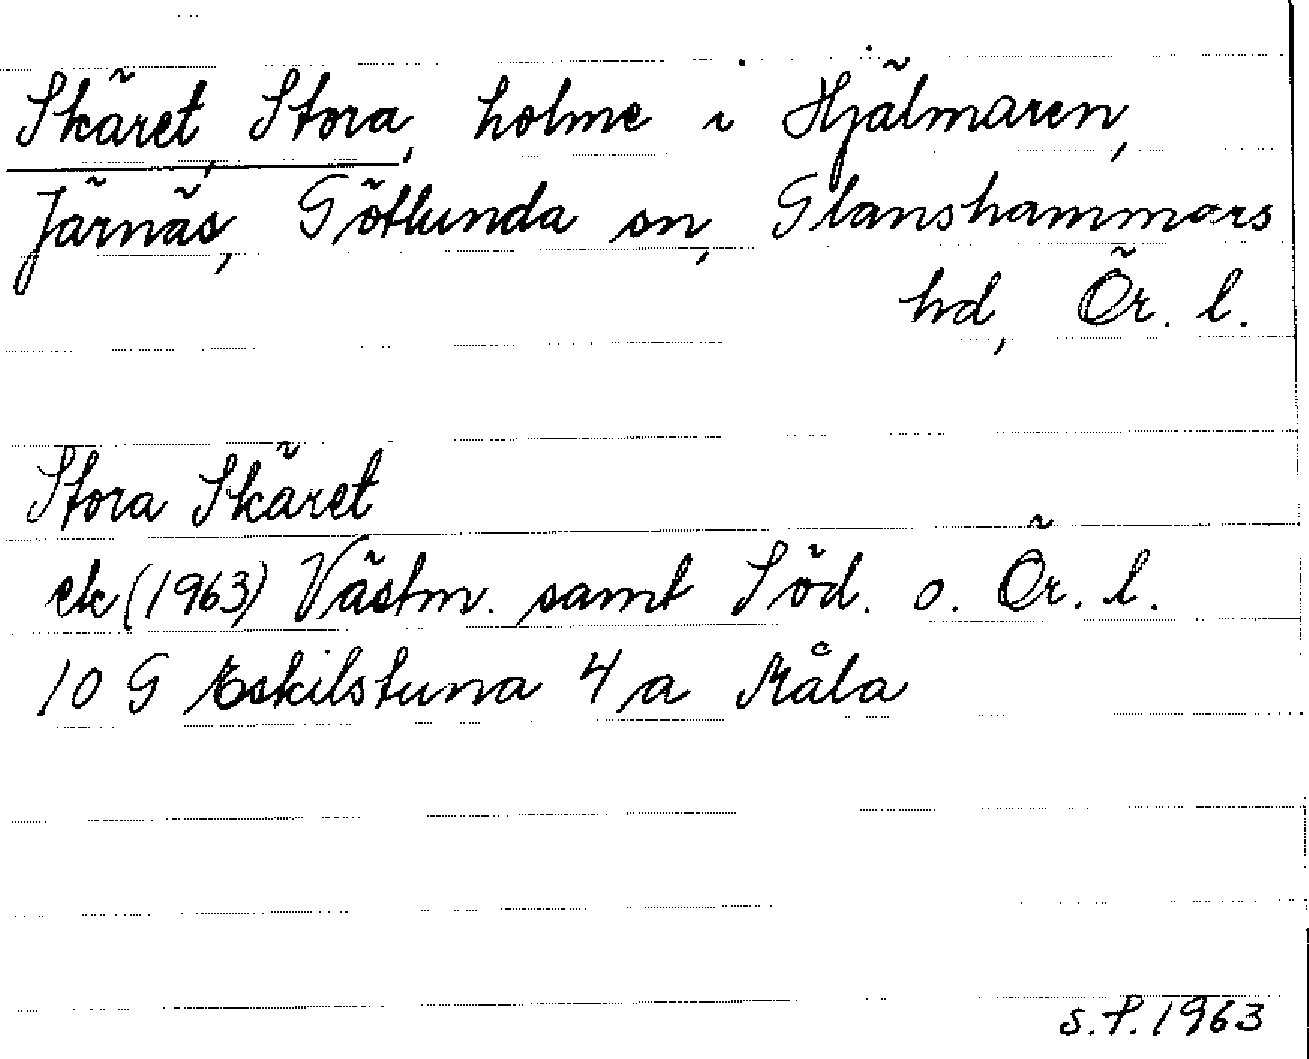 Skäret, Stora, holme i Hjälmaren,
Järnäs, Götlunda sn, Glanshammars
hd, Ör. l.
Stora Skäret
ek (1963) Västm. samt Söd. o. Ör. l.
10 G Eskilstuna 4 a Måla
S.P. 1963